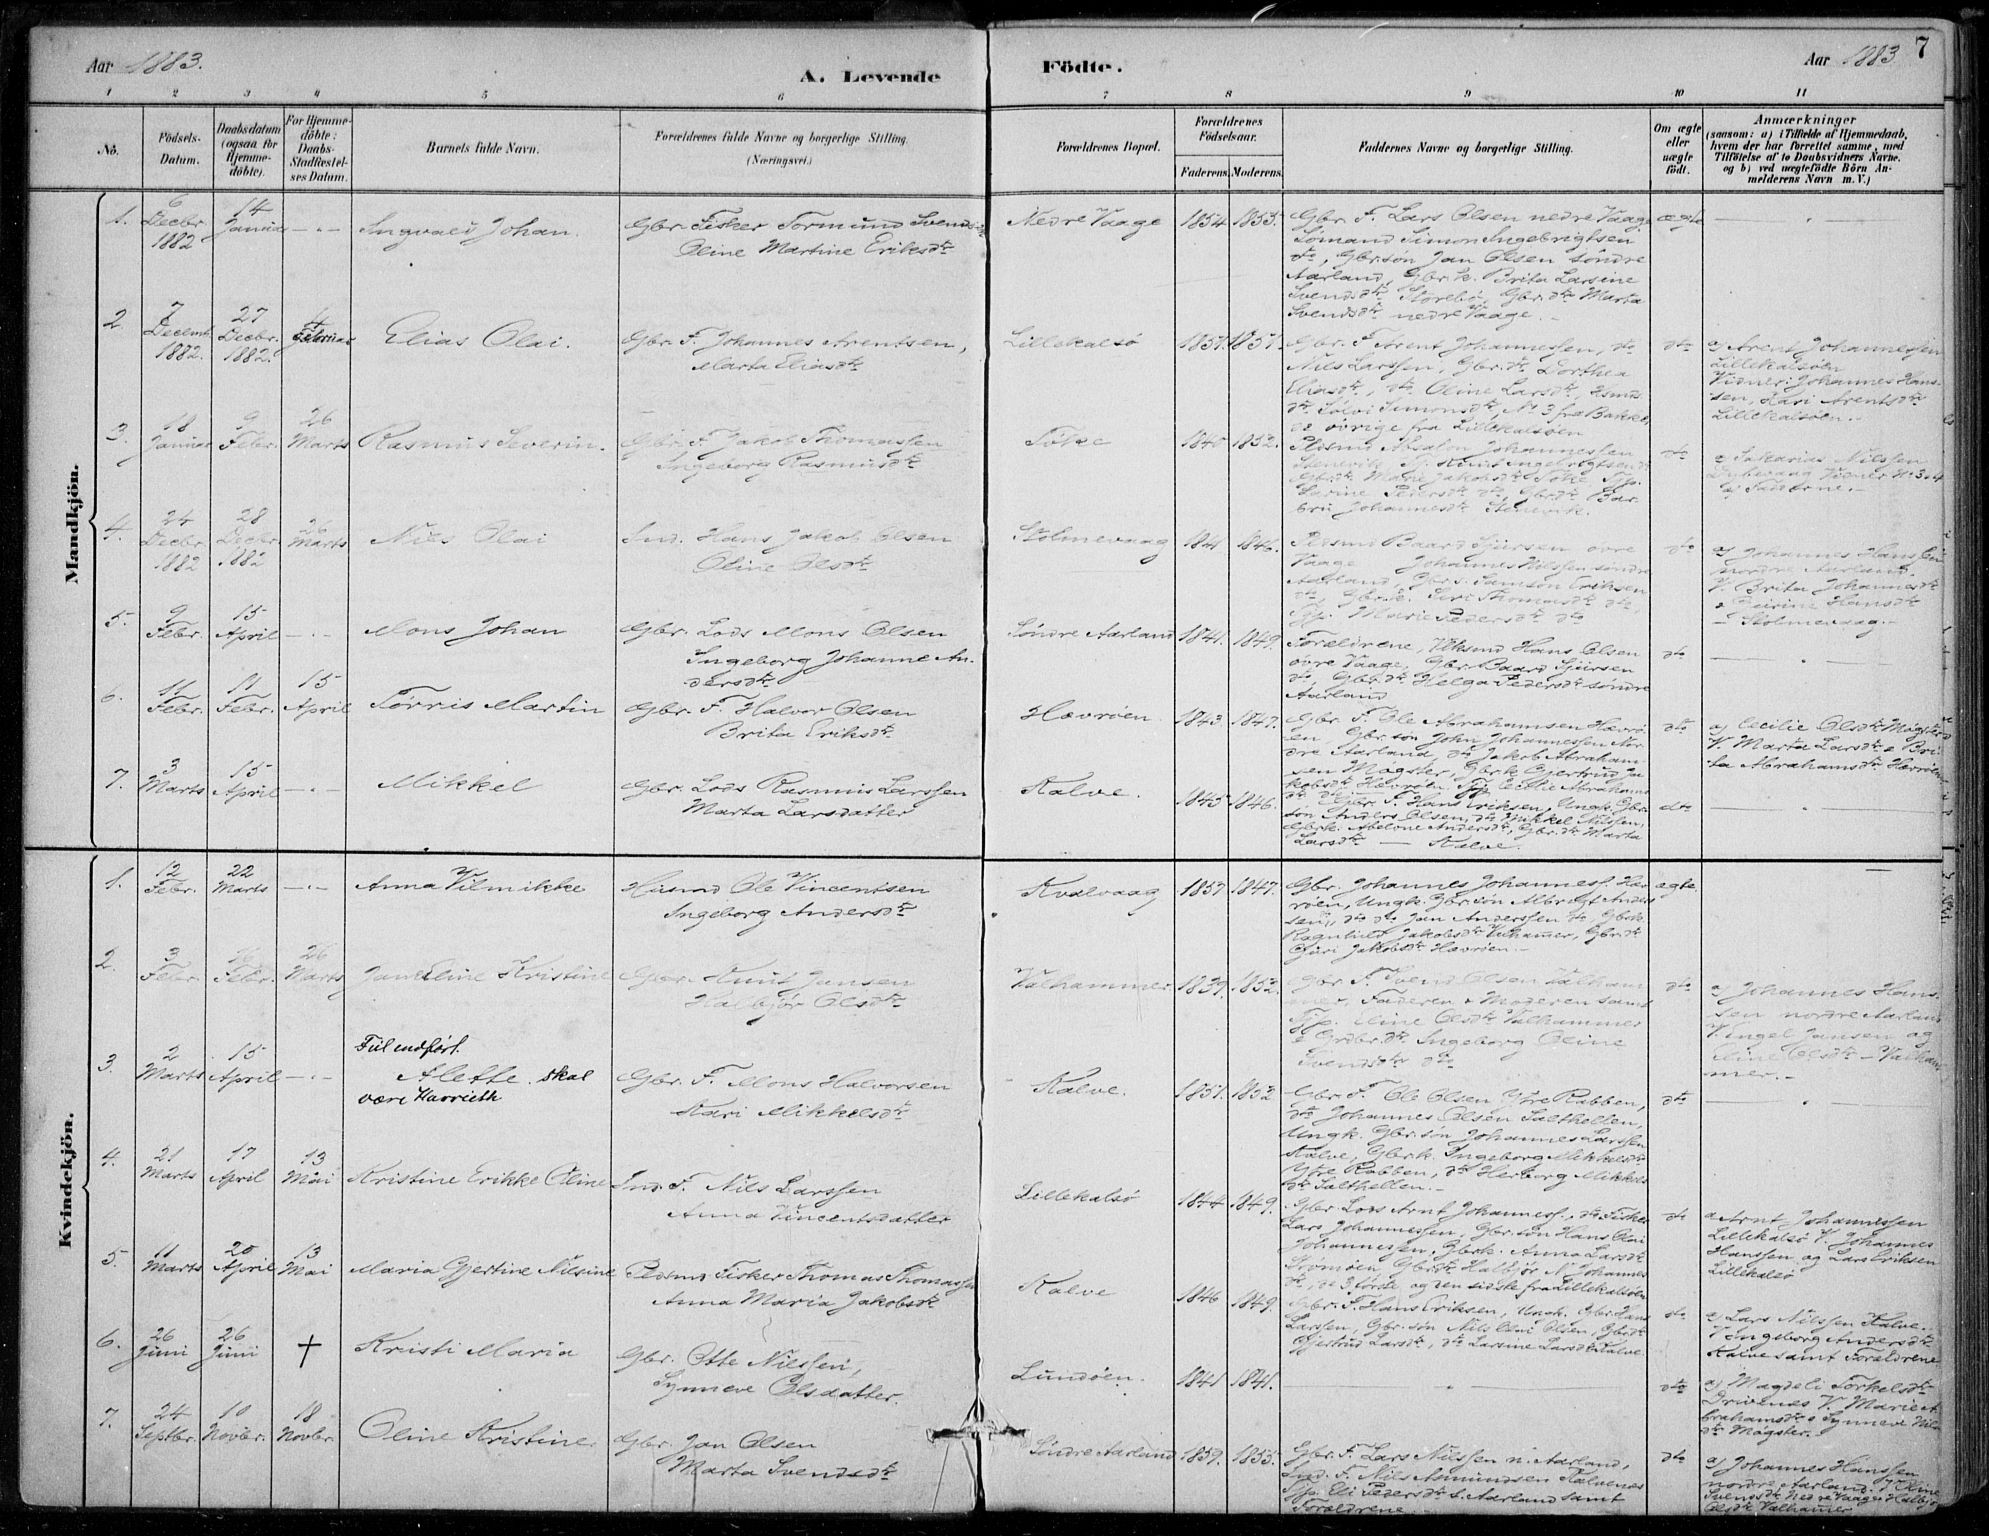 Aar 1883.
A. Levende
Födte.
Aar 1883
7
1 2 3 4 5 6 7 8 9 10 11
No.
Födsels-
Datum.
Daabsdatum
(ogsaa for
Hjemme-
döbte).
For Hjemme-
döbte:
Daabs-
Stadfæstel-
ses Datum.
Barnets fulde Navn.
Forældrenes fulde Navne og borgerlige Stilling.
(Næringsvei.)
Forældrenes Bopæl.
Forældrenes
Födselsaar.
Faderens. Moderens.
Faddernes Navne og borgerlige Stilling.
Om ægte
eller
uægte
födt.
Anmærkninger
(saasom: a) i Tilfælde af Hjemmedaab,
hvem der har forrettet samme, med
Tilföielse af to Daabsvidners Navne.
og b) ved uægtefödte Börn An-
melderens Navn m. V.)
Mandkjön.
1. 6 Decbr. 1882 14 Januar Ingvald Johan.
Gbr. Fisker Tormund Svends
Oline Martine Eriksdtr
Nedre Vaage 1854 1853.
Gbr. F. Lars Olsen nedre Vaage
Sømand Simon Ingebrigtsen
dto, Gbr.søn Jan Olsen søndre
Aarland, Gbr.k. Brita Larsine
Svendsdtr Storebø, Gbr.dtr Marta
Svendsdtr nedre Vaage.
ægte
2 7 Decemb. 1882. 27 Decbr. 1882. 4 Februar Elias Olai.
Gbr. F. Johannes Arentsen,
Marta Eliasdtr
Lillekalsø 1857. 1857.
Gbr. F. Arent Johannessen, dto
Nils Larssen, Gbr.dtr Dorthea
Eliasdtr, dto Oline Larsdtr, Husmds
dtr Sølvi Simonsdtr, No 3 fra Bakke,
de øvrige fra Lillekalsøen
dto
a) Arent Johannessen
Lillekalsøen
Vidner: Johannes Hans-
sen, Kari Arentsdtr
Lillekalsøen.
3. 18 Januar 9 Febr. 26 Marts Rasmus Severin.
Gbr. F. Jakob Thomassen
Ingeborg Rasmusdtr
Toke 1840 1852.
Absalon Johannessen
Stenevik
Gbr.dtr Marie Jakobsdtr Toke
Larine Pedersdtr dto, Gbr.dtr Bar-
bru Johannesdtr Stenevik.
dto
a) Sakarias Nilssen
Vidner No 3 & 4
4. 24 Decbr. 1882 28 Decbr. 1882 26 Marts Nils Olai
Ind. Hans Jakob Olsen
Oline Olsdtr
Stolmevaag 1841 1846.
Baard Sjursen øvre
Vaage Johannes Nilssen søndre
Aarland, Gbr.s. Samson Eriksen
dto, Gbr.k. Siri Thomasdtr dto,
Marie Pedersdtr dto
dto
a) Johannes Hanssen
nordre Aarland.
V. Brita Johannesdtr
Hansdtr
Stolmevaag.
5. 9 Febr. 15 April Mons Johan
Gbr. Lods Mons Olsen
Ingeborg Johanne An-
dersdtr
Søndre Aarland 1841. 1849.
Forældrene, Hans Olsen
øvre Vaage, Gbr. Baard Sjursen
dto, Gbr.dtr Helga Pedersdtr søndre
Aarland
dto
6. 11 Febr. 11 Febr. 15 April Tørris Martin
Gbr. F. Halvor Olsen
Brita Eriksdtr
Hævrøen. 1843 1847.
Gbr. F. Ole Abrahamsen Hævrø-
en, Gbr.søn John Johannessen Nor-
dre Aarland, dto Jakob Abraham-
sen Møgster, Gbrk Gjertrud Ja-
kobsdtr Hævrøen, Cecilie Abrahams
dtr dto
dto
a) Cecilie Olsdtr Møgster
V. Marta Larsdtr & Bri-
ta Abrahamsdtr Hævrøen
7. 3 Marts 15 April Mikkel
Gbr. Lods Rasmus Larssen
Marta Larsdatter
Kalve. 1845 1846.
Gbr. F. Hans Eriksen, Ungk. Gbr.
søn Anders Olsen, dto Mikkel Nilssen,
Gbrk. Abelone Andersdtr, Gbr.dtr Marta
Larsdtr — Kalve.
dto
Kvindekjön.
1. 12 Febr. 22 Marts Anna Vilmikke
Husmd Ole Vincentsen
Ingeborg Andersdtr
Kvalvaag 1857 1847.
Gbr. Johannes Johanness. Hæv-
røen, Ungk. Gbr.søn Albregt Anders
sen, dto dto Jan Anderssen dto, Gbrk.
Ragnhild Jakobsdtr Valhammer, Gbr.dtr
Guri Jakobsdtr Hævrøen.
ægte.
2. 3 Febr. Febr. 26 Marts Janeline Kristine
Gbr. Knut Jansen
Halbjør Olsdtr
Valhammer 1839. 1852.
Gbr. F. Svend Olsen Valham-
mer, Faderen & Moderen samt
Eline Olsdtr Valhammer
Ingeborg Oline
Svendsdtr dto
dto
a) Johannes Hans-
sen nordre Aarland
V. Engel Jansen og
Eline Olsdtr — Valham-
mer.
3. 2 Marts 15 April
Fuldført.
Alette. skal
være Harrieth
Gbr. F. Mons Halvorsen
Kari Mikkelsdtr
Kalve. 1851. 1852
Gbr. F. Ole Olsen Ytre Rabben,
dto Johannes Olsen Salthellen,
Ungk. Gbr.søn Johannes Larssen
Kalve, Gbrk. Ingeborg Mikkelsdtr
Ytre Rabben, dto Herborg Mikkels-
dtr Salthellen.
dto
4. 21 Marts 17 April 13 Mai Kristine Erikke Oline
Ind. F. Nils Larssen
Anna Vincentsdatter
Lillekalsø 1844 1849.
Gbr. Lods Arnt Johanness., dto Fisker
Lars Johannessen, Gbr.søn Hans Olai
Johannessen, Gbrk. Anna Larsdtr
Gbr.dtr Halbjør N. Johannes
dtr, de 3 første og den sidste fra Lillekalsøen
dto
a Arnt Johannessen
Lillekalsø V. Johannes
Hanssen og Lars Eriksen
Lillekalsø
5. 11 Marts 20 April 13 Mai Maria Gjertine Nilsine
Pldsmd Fisker Thomas Thomassen
Anna Maria Jakobsdtr
Kalve 1846 1849.
Gbr. F. Hans Eriksen, Ungk. Gbr. Hans
Larssen, Gbr.søn Nils Olai Olsen, Gbr.dtr
Gjertrud Larsdtr, dto Larsine Larsdtr Kalve.
dto
a) Lars Nilssen Kalve.
V. Ingeborg Andersdtr
Kalve samt Forældrene
6. 26 Juni 26 Juni † Kristi Maria
Gbr. Otte Nilssen,
Synneve Olsdatter.
Lundøen. 1841 1841.
dto
a) Magdeli Torkelsdtr
Drivenes V. Marie A-
brahamsdtr & Synneve Nils-
dtr Møgster.
7. 24 Septbr. 10 Novbr. 18 Novbr. Oline Kristine.
Gbr. Jan Olsen
Marta Svendsdtr
Søndre Aarland 1859. 1855.
Gbr. F. Lars Nilssen n. Aarland,
Ind. F. Nils Asmundsen Kalvenes
Eli Pedersdtr s. Aarland samt
Forældrene
dto
a) Johannes Hanssen
nordre Aarland. V. Oline
Svendsdtr Nedre Vaage & Halbjør
Olsdtr Valhammer